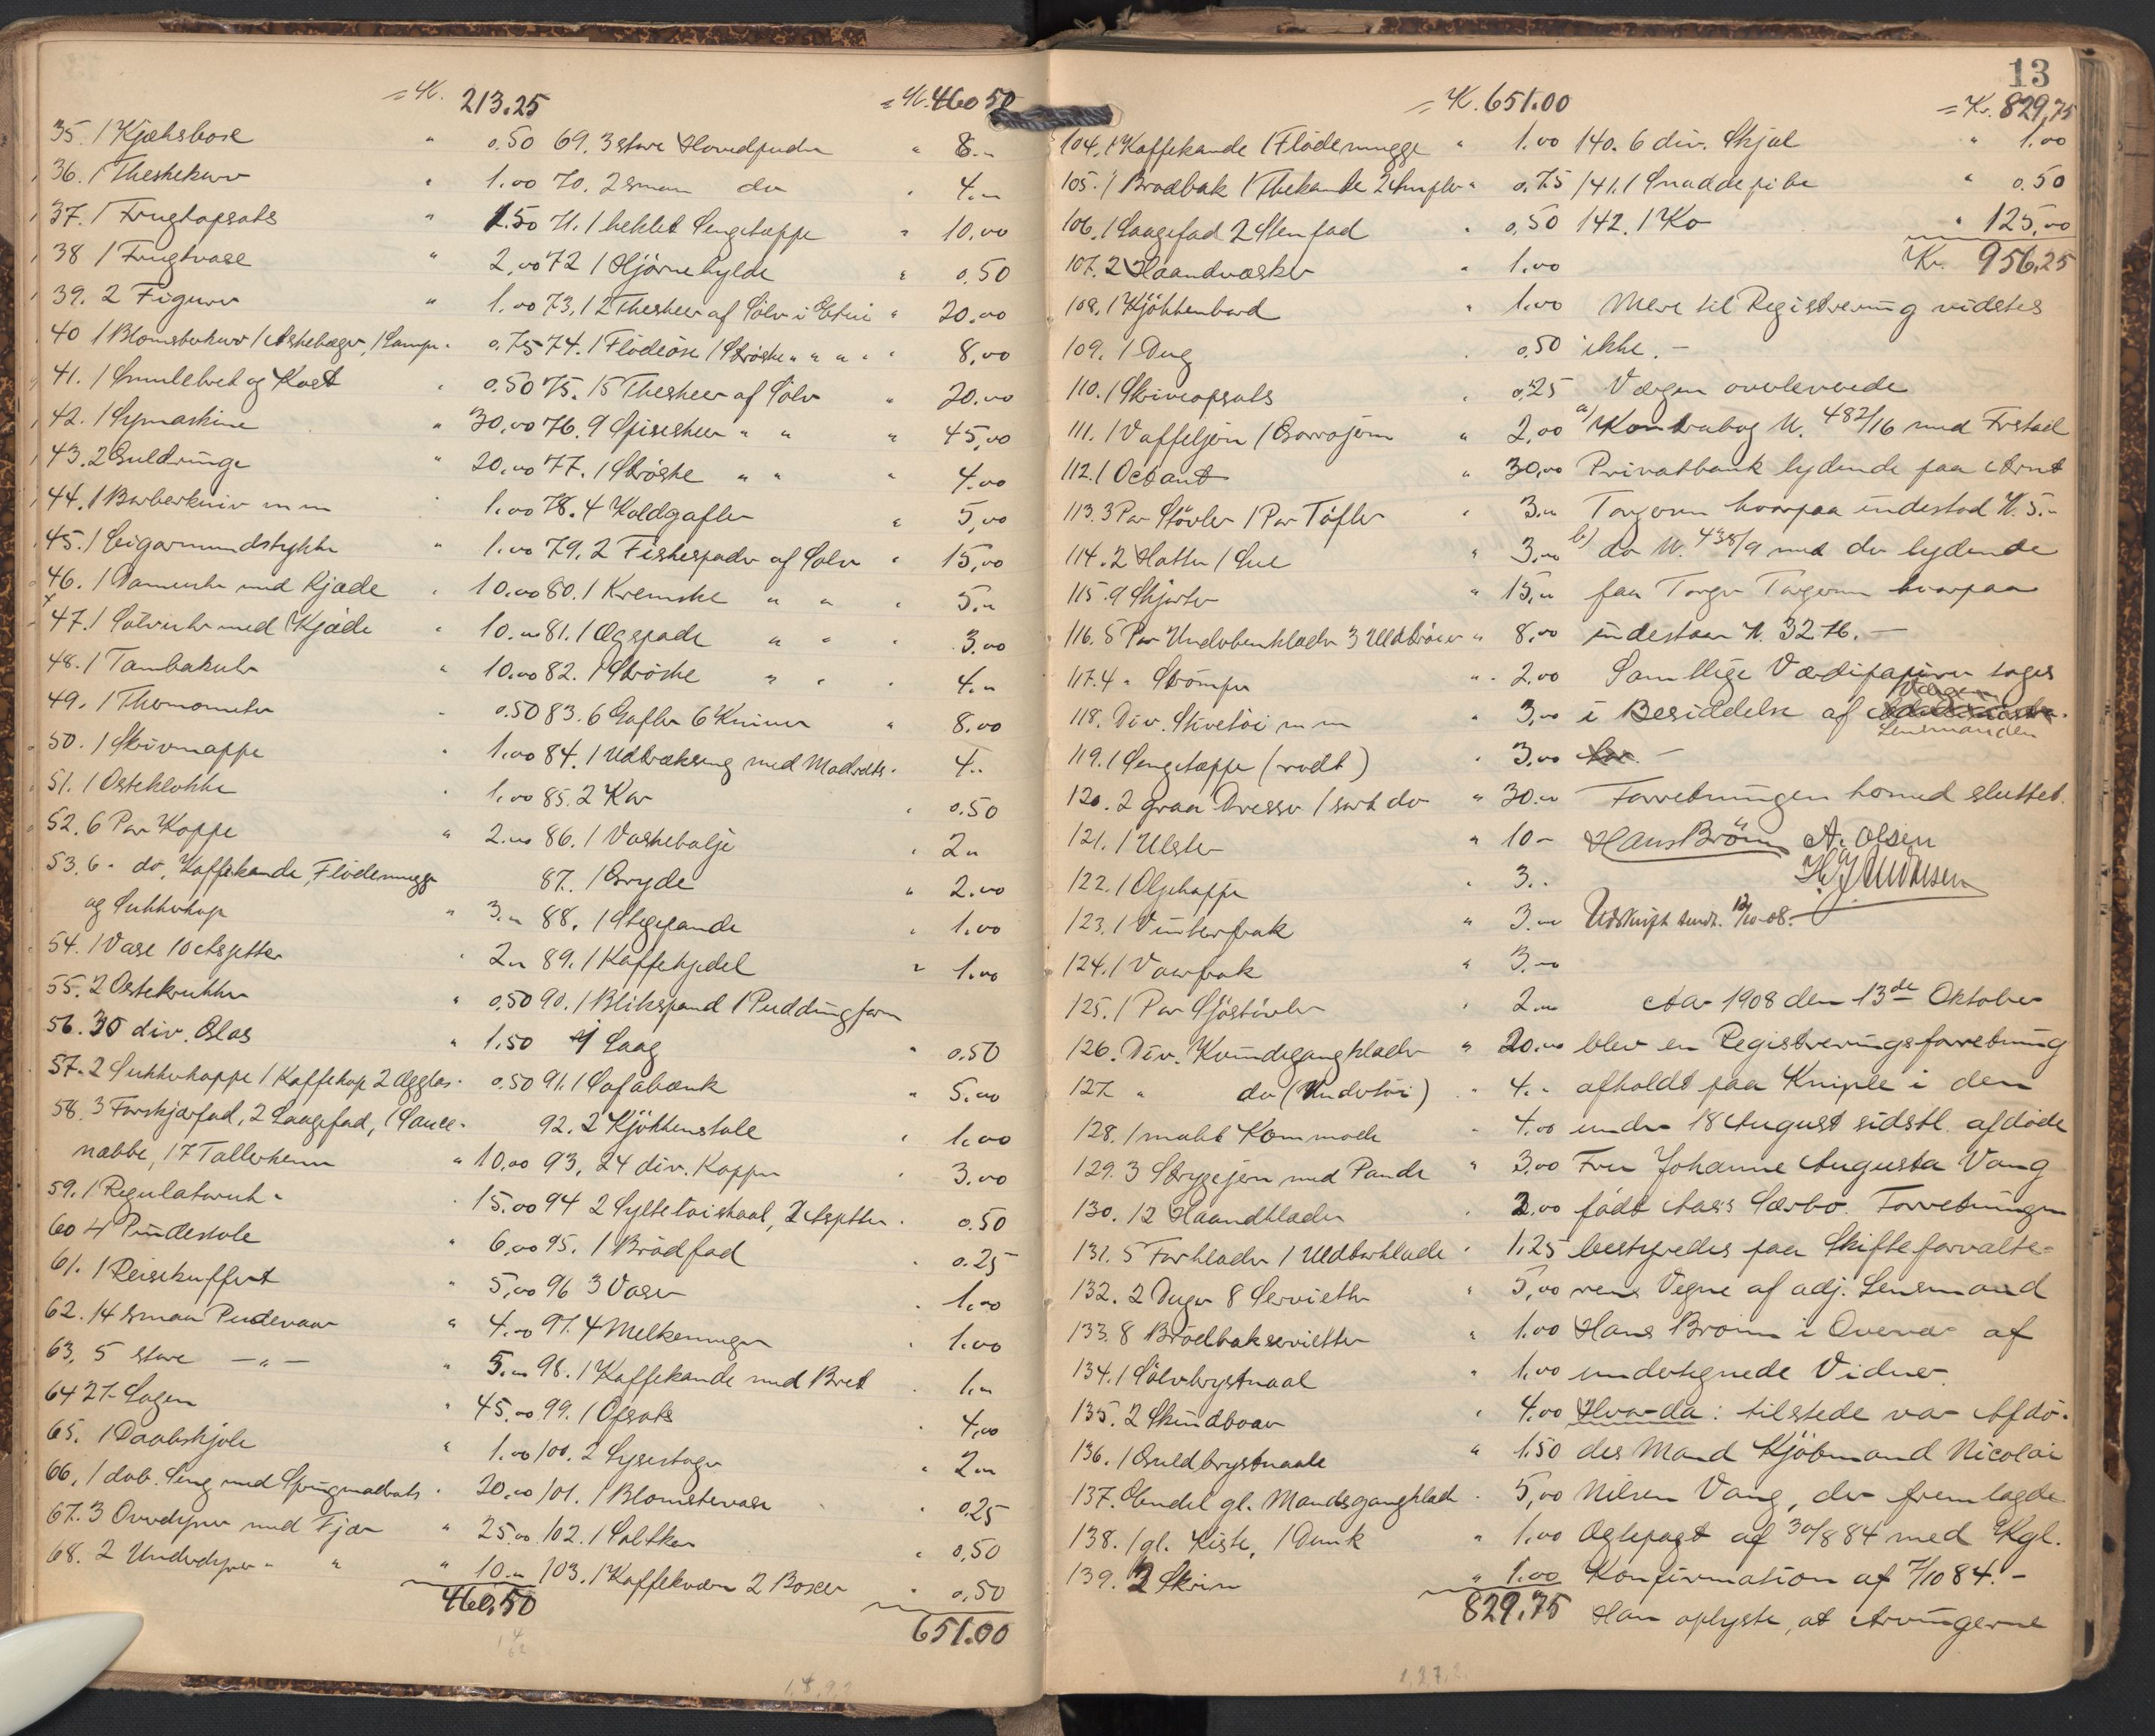 = K. 213.25
35. 1 Kjæksbosse " 0.50
36. 1 Theskekurv " 1.00
37. 1 Frugtopsats " 1.50
38 1 Frugtvase " 2,00
39. 2 Figurer " 1.00
40 1 Blomsterkurv 1 Askebæger, 1 Lampe " 0.75
41. 1 Smulebret og Kost " 0.50
42. 1 Symaskine " 30,00
43. 2 Guldringe " 20.00
44. 1 Barberkniv m m 1.00
45. 1 Cigarmundstykke " 1.00
46. 1 Dameuhr med Kjæde " 10.00
47. 1 Sølvuhr med Kjæde " 10.00
48. 1 Tambakuhr " 10.00
49. 1 Thermometer 0.50
50. 1 Skrivmappe " 1.00
51. 1 Osteklokke " 1.00
52. 6 Par Koppe " 2.00
53. 6 " do, Kaffekande, Flødemugge
og Sukkerkop " 3.00
54. 1 Vase 10 Asjetter " 2.00
55. 2 Ostekrukker " 0,50
56. 30 div. Glas " 1.50
57. 2 Sukkerkoppe 1 Kaffekop 2 Ægglas " 0.50
58. 3 Forskjærfad, 2 Laagefad, 1 Sauce-
næbbe, 17 Tallerkener " 10.00
59. 1 Regulatoruhr " 15.00
60 4 Pindestole " 6,00
61. 1 Reisekuffert " 5,00
62. 14 smaa Pudevaar " 4.00
63. 5 store — " — " 5.00
64 27 Lagen " 45.00
65. 1 Daabskjole " 1.00
66. 1 dob. Seng med Springmadrats " 20,00
67. 3 Overdyner med Fjær " 25.00
68. 2 Underdyner " " " 10.00
460.50
= K. 460 50
69. 3 store Hovedpuder " 8.-
70. 2 smaa do " 4.-
71. 1 heklet Sengetæppe " 10,00
72 1 Hjørnehylde " 0.50
73. 12 Theskeer af Sølv i Etui " 20.00
74. 1 Flødeøse 1 Strøske " " " " 8,00
75. 15 Theskeer af Sølv " 20.00
76. 9 Spiseskeer " " " 45,00
77. 1 Strøske " " " 4.00
78. 4 Koldgafler " 5,00
79. 2 Fiskespader af Sølv " 15,00
80. 1 Kremske " " " 5.-
81. 1 Ægspade " " " 3.00
82. 1 Strøske " " " 4.-
83. 6 Gafler 6 Kniver " 8.00
84. 1 Udtræksseng med Madrats " 4.-
85. 2 Kar " 0.50
86. 1 Vaskebalje " 2.-
87. 1 Gryde " 2.00
88. 1 Stegepande " 1.00
89. 1 Kaffekjedel " 1.00
90. 1 Blikspand 1 Puddingform
1 Laag " 0.50
91. 1 Sofabænk " 5.00
92. 2 Kjøkkenstole " 1.00
93. 24 div. Kopper " 3.00
94 2 Syltetøiskaal, 2 Asjetter " 0.50
95. 1 Brødfad " 0.25
96 3 Vaser " 1.00
97. 4 Melkemugger " 1.00
98. 1 Kaffekande med Bret " 1.-
99. 1 Opsats " 4,00
100. 2 Lysestager " 2.00
101. 1 Blomstervase " 0,25
102. 1 Saltkar " 0,50
103. 1 Kaffekværn 2 Boxer " 0,50
651.00
13
= K. 651.00
104. 1 Kaffekande 1 Flødemugge " 1.00
105. 1 Brødbak 1 Thekande " 0.75
106. 1 Laagefad 2 Stenfad " 0,50
107. 2 Haandvæsker " 1.00
108. 1 Kjøkkenbord " 1.00
109. 1 Dug " 0.50
110. 1 Skriveopsats " 0,25
111. 1 Vaffeljern 1 Gorrojern " 2,00
112. 1 Octant " 30,00
113. 3 Par Støvler 1 Par Tøfler " 3.00
114. 2 Hatter 1 Lue " 3,00
115. 9 Skjorter " 15,00
116. 5 Par Underbenklæder 3 Uldtrøier " 8,00
117. 4 " Strømper " 2.00
118. Div. Stivetøi m m " 3,00
119. 1 Sengetæppe (rødt) " 3,00
120. 2 graa Dresser 1 sort do " 30.00
121. 1 Ulster " 10 -
122. 1 Oljekappe " 3.-
123. 1 Vinterfrak " 3.00
124. 1 Vaarfrak " 3.00
125. 1 Par Sjøstøvler " 2.00
126. Div. Kvindegangklæder " 20.00
127. " do (Undertøi) " 4.-
128. 1 malt Kommode " 4.00
129. 3 Strygejern med Pande " 3,00
130. 12 Haandklæder " 2.00
131. 5 Forklæder 1 Uldtørklæde " 1,25
132. 2 Duger 8 Servietter " 5,00
133. 8 Brødbakservietter " 1.00
134. 1 Sølvbrystnaal " 1,00
135. 2 Skindboaer " 4.00
136. 1 Guldbrystnaale " 1.50
137. Endel gl. Mandsgangklæder " 5,00
138. 1 gl. Kiste, 1 Dunk " 1.00
139. 2 Skrin " 1.00
829.75
= Kr. 829,75
140. 6 div. Skjæl " 1.00
141. 1 Snaddepibe " 0.50
142. 1 Ko " 125,00
Kr. 956,25
Mere til Registrering vidstes
ikke. -
Værgen overleverede
a) Kontrabog N. 482/16 med Frstad
Privatbank lydende paa Arnt
Torgersen hvorpaa indestod K. 5.-
b) do N. 438/9 med do lydende
paa Torger Torgersen hvorpaa
indestaar K. 32.16. -
Samtlige Værdipapirer toges
i Besiddelse af
Værgen
Lensmanden
Forretningen hermed sluttet.
Hans Brøin A. Olsen
Udskrift sendt. 12/10-08. -
Aar 1908 den 13de Oktober
blev en Registreringsforretning
afholdt paa Kniple i den
under 18 August sidstl. afdøde
Fru Johanne Augusta Vang
født Aass Særbo. Forretningen
bestyredes paa Skifteforvalte-
rens Vegne af adj. Lensmand
Hans Brøin i Overvær af
undertegnede Vidner.
Hvor da: tilstede var Afdø-
des Mand Kjøbmand Nicolai
Nilsen Vang, der fremlagde
Ægtepagt af 30/8 84 med Kgl.
Konfirmation af 7/10 84. -
Han oplyste, at Arvingerne